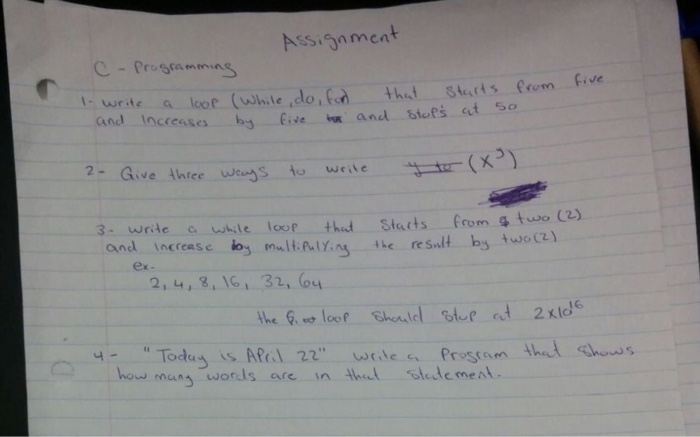 Assignment
C - Programming
1- write a loop (while, do, for) that starts from five
and Increases by five and stops at 50
2- Give three ways to write (x³)
3- write a while loop that starts from two (2)
and increase by multipulying the result by two(2)
ex-
2, 4, 8, 16, 32, 64
the loop should stop at 2x10¹⁶
4- "Today is April 22" write a program that shows
how many words are in that statement.